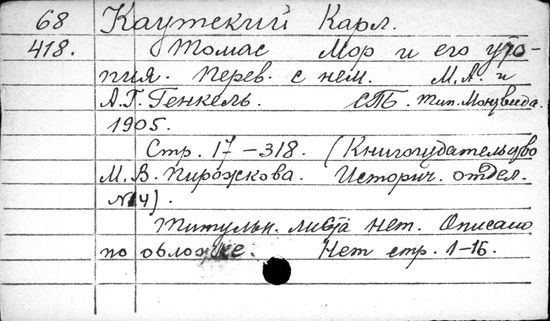 68 Каутский Карл.
418. Томас Мор и его уто-
пия. Перев. с нем. М.А. и
А.Г. Генкель. СПБ. Тип. Монвида.
1905.
Стр. 17-318. (Книгоиздательство
М.В. Пирожкова. Историч. отдел.
№14).
Титульн. листа нет. Описано
по обложке. Нет стр. 1-16.